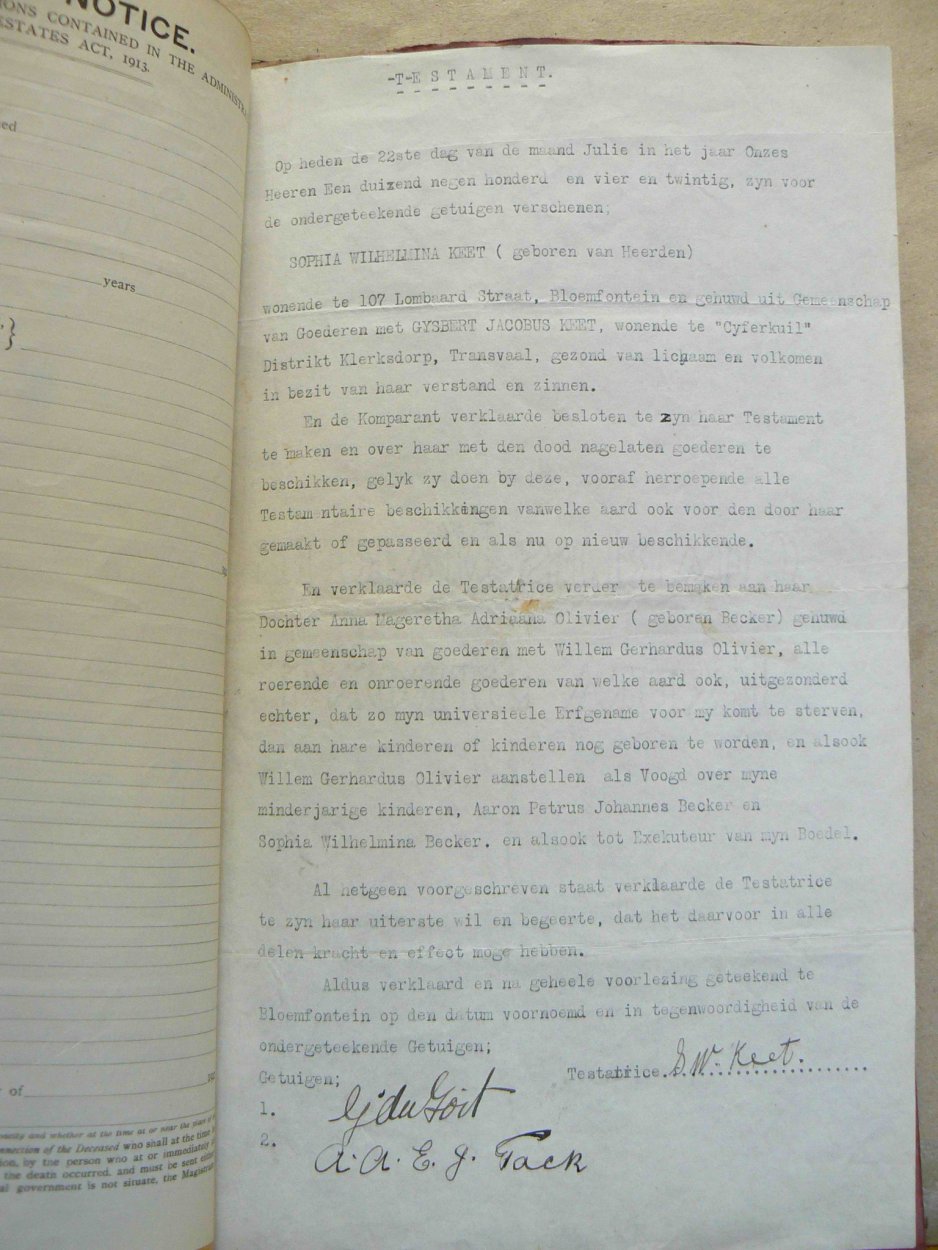 NOTICE.
IONS CONTAINED IN THE
ESTATES ACT, 1913.
years
of
-T-E S T A M E N T.
Op heden de 22ste dag van de maand Julie in het jaar Onzes
Heeren Een duizend negen honderd en vier en twintig, zyn voor
de ondergeteekende getuigen verschenen;
SOPHIA WILHELMINA KEET ( geboren van Heerden)
wonende te 107 Lombaard Straat, Bloemfontein en gehuwd uit Gemeenschap
van Goederen met GYSBERT JACOBUS KEET, wonende te "Cyferkuil"
Distrikt Klerksdorp, Transvaal, gezond van lichaam en volkomen
in bezit van haar verstand en zinnen.
En de Komparant verklaarde besloten te zyn haar Testament
te maken en over haar met den dood nagelaten goederen te
beschikken, gelyk zy doen by deze, vooraf herroepende alle
Testamentaire beschikkingen vanwelke aard ook voor den door haar
gemaakt of gepasseerd en als nu op nieuw beschikkende.
En verklaarde de Testatrice verder te bemaken aan haar
Dochter Anna Mageretha Adriaana Olivier ( geboren Becker) gehuwd
in gemeenschap van goederen met Willem Gerhardus Olivier, alle
roerende en onroerende goederen van welke aard ook, uitgezonderd
echter, dat zo myn universieele Erfgename voor my komt te sterven,
dan aan hare kinderen of kinderen nog geboren te worden, en alsook
Willem Gerhardus Olivier aanstellen als Voogd over myne
minderjarige kinderen, Aaron Petrus Johannes Becker en
Sophia Wilhelmina Becker. en alsook tot Exekuteur van myn Boedel.
Al hetgeen voorgeschreven staat verklaarde de Testatrice
te zyn haar uiterste wil en begeerte, dat het daarvoor in alle
delen kracht en effect moge hebben.
Aldus verklaard en na geheele voorlezing geteekend te
Bloemfontein op den datum voornoemd en in tegenwoordigheid van de
ondergeteekende Getuigen;
Getuigen; Testatrice. S. W. Keet.
1.
2. A. A. E. J. Tack
nnection of the Deceased who shall at the time
ion, by the person who at or immediately
the death occurred, and must be sent
al government is not situate, the Magistrate